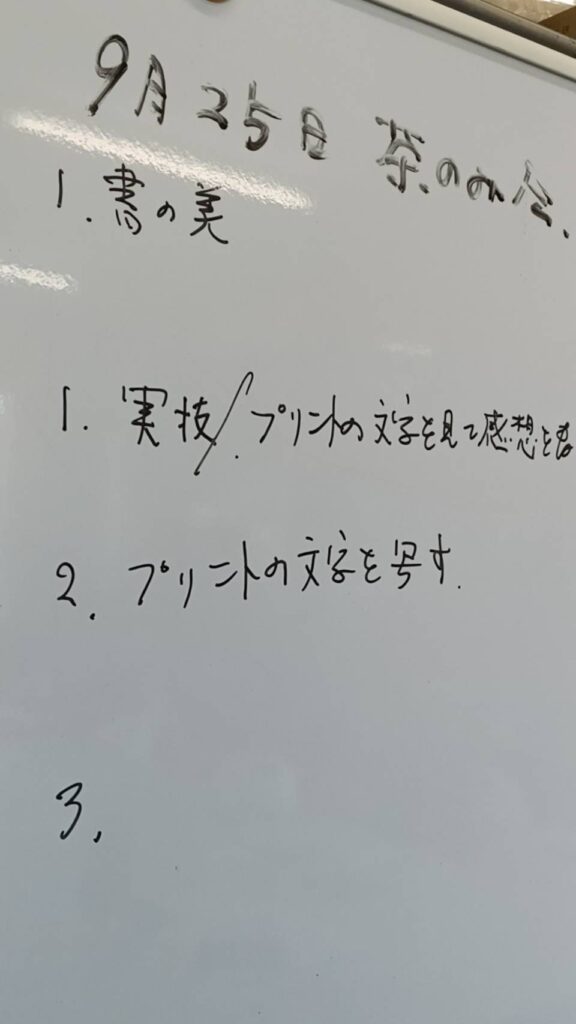 9月25日 茶の
1. 書の美
1. 実技/プリントの文字を見て感想を
2. プリントの文字を写す.
3.